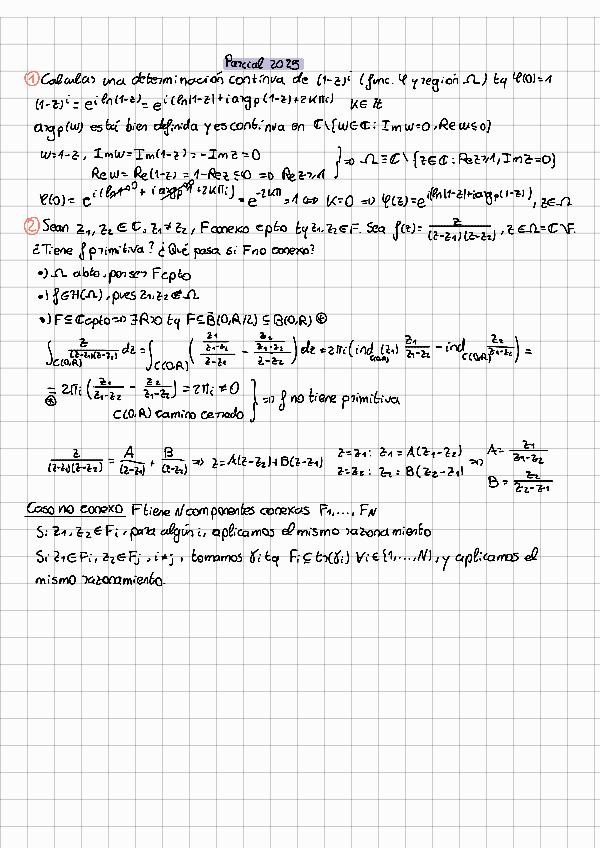 Parcial 2025
① Calculas una determinación continua de (1-z)^i (func. φ y región Ω) tq φ(0)=1
(1-z)^i = e^{i ln(1-z)} = e^{i(ln|1-z| + i arg_p(1-z) + 2kπi)} k∈ℤ
arg_p(w) está bien definida y es continua en ℂ\{w∈ℂ: Im w=0, Re w≤0}
w=1-z, Im w = Im(1-z) = -Im z = 0
Re w = Re(1-z) = 1-Re z ≤ 0 ⇒ Re z ≥ 1 } ⇒ Ω = ℂ\{z∈ℂ: Re z ≥ 1, Im z = 0}
φ(0) = e^{i(ln 1 + i arg_p + 2kπi)} = e^{-2kπ} = 1 ⇔ k=0 ⇒ φ(z) = e^{i(ln|1-z| + i arg_p(1-z))}, z∈Ω
② Sean z₁, z₂ ∈ ℂ, z₁ ≠ z₂, F conexo cpto tq z₁, z₂ ∈ F. Sea f(z) = z/((z-z₁)(z-z₂)), z∈Ω=ℂ\F.
¿Tiene f primitiva? ¿Qué pasa si F no conexo?
•) Ω abto, por ser F cpto
•) f∈H(Ω), pues z₁, z₂ ∉ Ω
•) F⊆ℂ cpto ⇒ ∃R>0 tq F⊆B(0,R/2) ⊆ B(0,R) ⊛
∫_{C(0,R)} z/((z-z₁)(z-z₂)) dz = ∫_{C(0,R)} ( (z₁/(z₁-z₂))/(z-z₁) - (z₂/(z₁-z₂))/(z-z₂) ) dz = 2πi ( ind_{C(0,R)}(z₁) z₁/(z₁-z₂) - ind_{C(0,R)} z₂/(z₁-z₂) ) =
=_⊛ 2πi ( z₁/(z₁-z₂) - z₂/(z₁-z₂) ) = 2πi ≠ 0
C(0,R) camino cerrado } ⇒ f no tiene primitiva
z/((z-z₁)(z-z₂)) = A/(z-z₁) + B/(z-z₂) ⇒ z = A(z-z₂)+B(z-z₁) z=z₁: z₁ = A(z₁-z₂) z=z₂: z₂ = B(z₂-z₁) ⇒ A = z₁/(z₁-z₂) B = z₂/(z₂-z₁)
Caso no conexo F tiene N componentes conexas F₁,..., F_N
Si z₁, z₂ ∈ Fᵢ, para algún i, aplicamos el mismo razonamiento
Si z₁∈Fᵢ, z₂∈Fⱼ, i≠j, tomamos γᵢ tq Fᵢ ⊆ tr(γᵢ) ∀i∈{1,...,N}, y aplicamos el
mismo razonamiento.